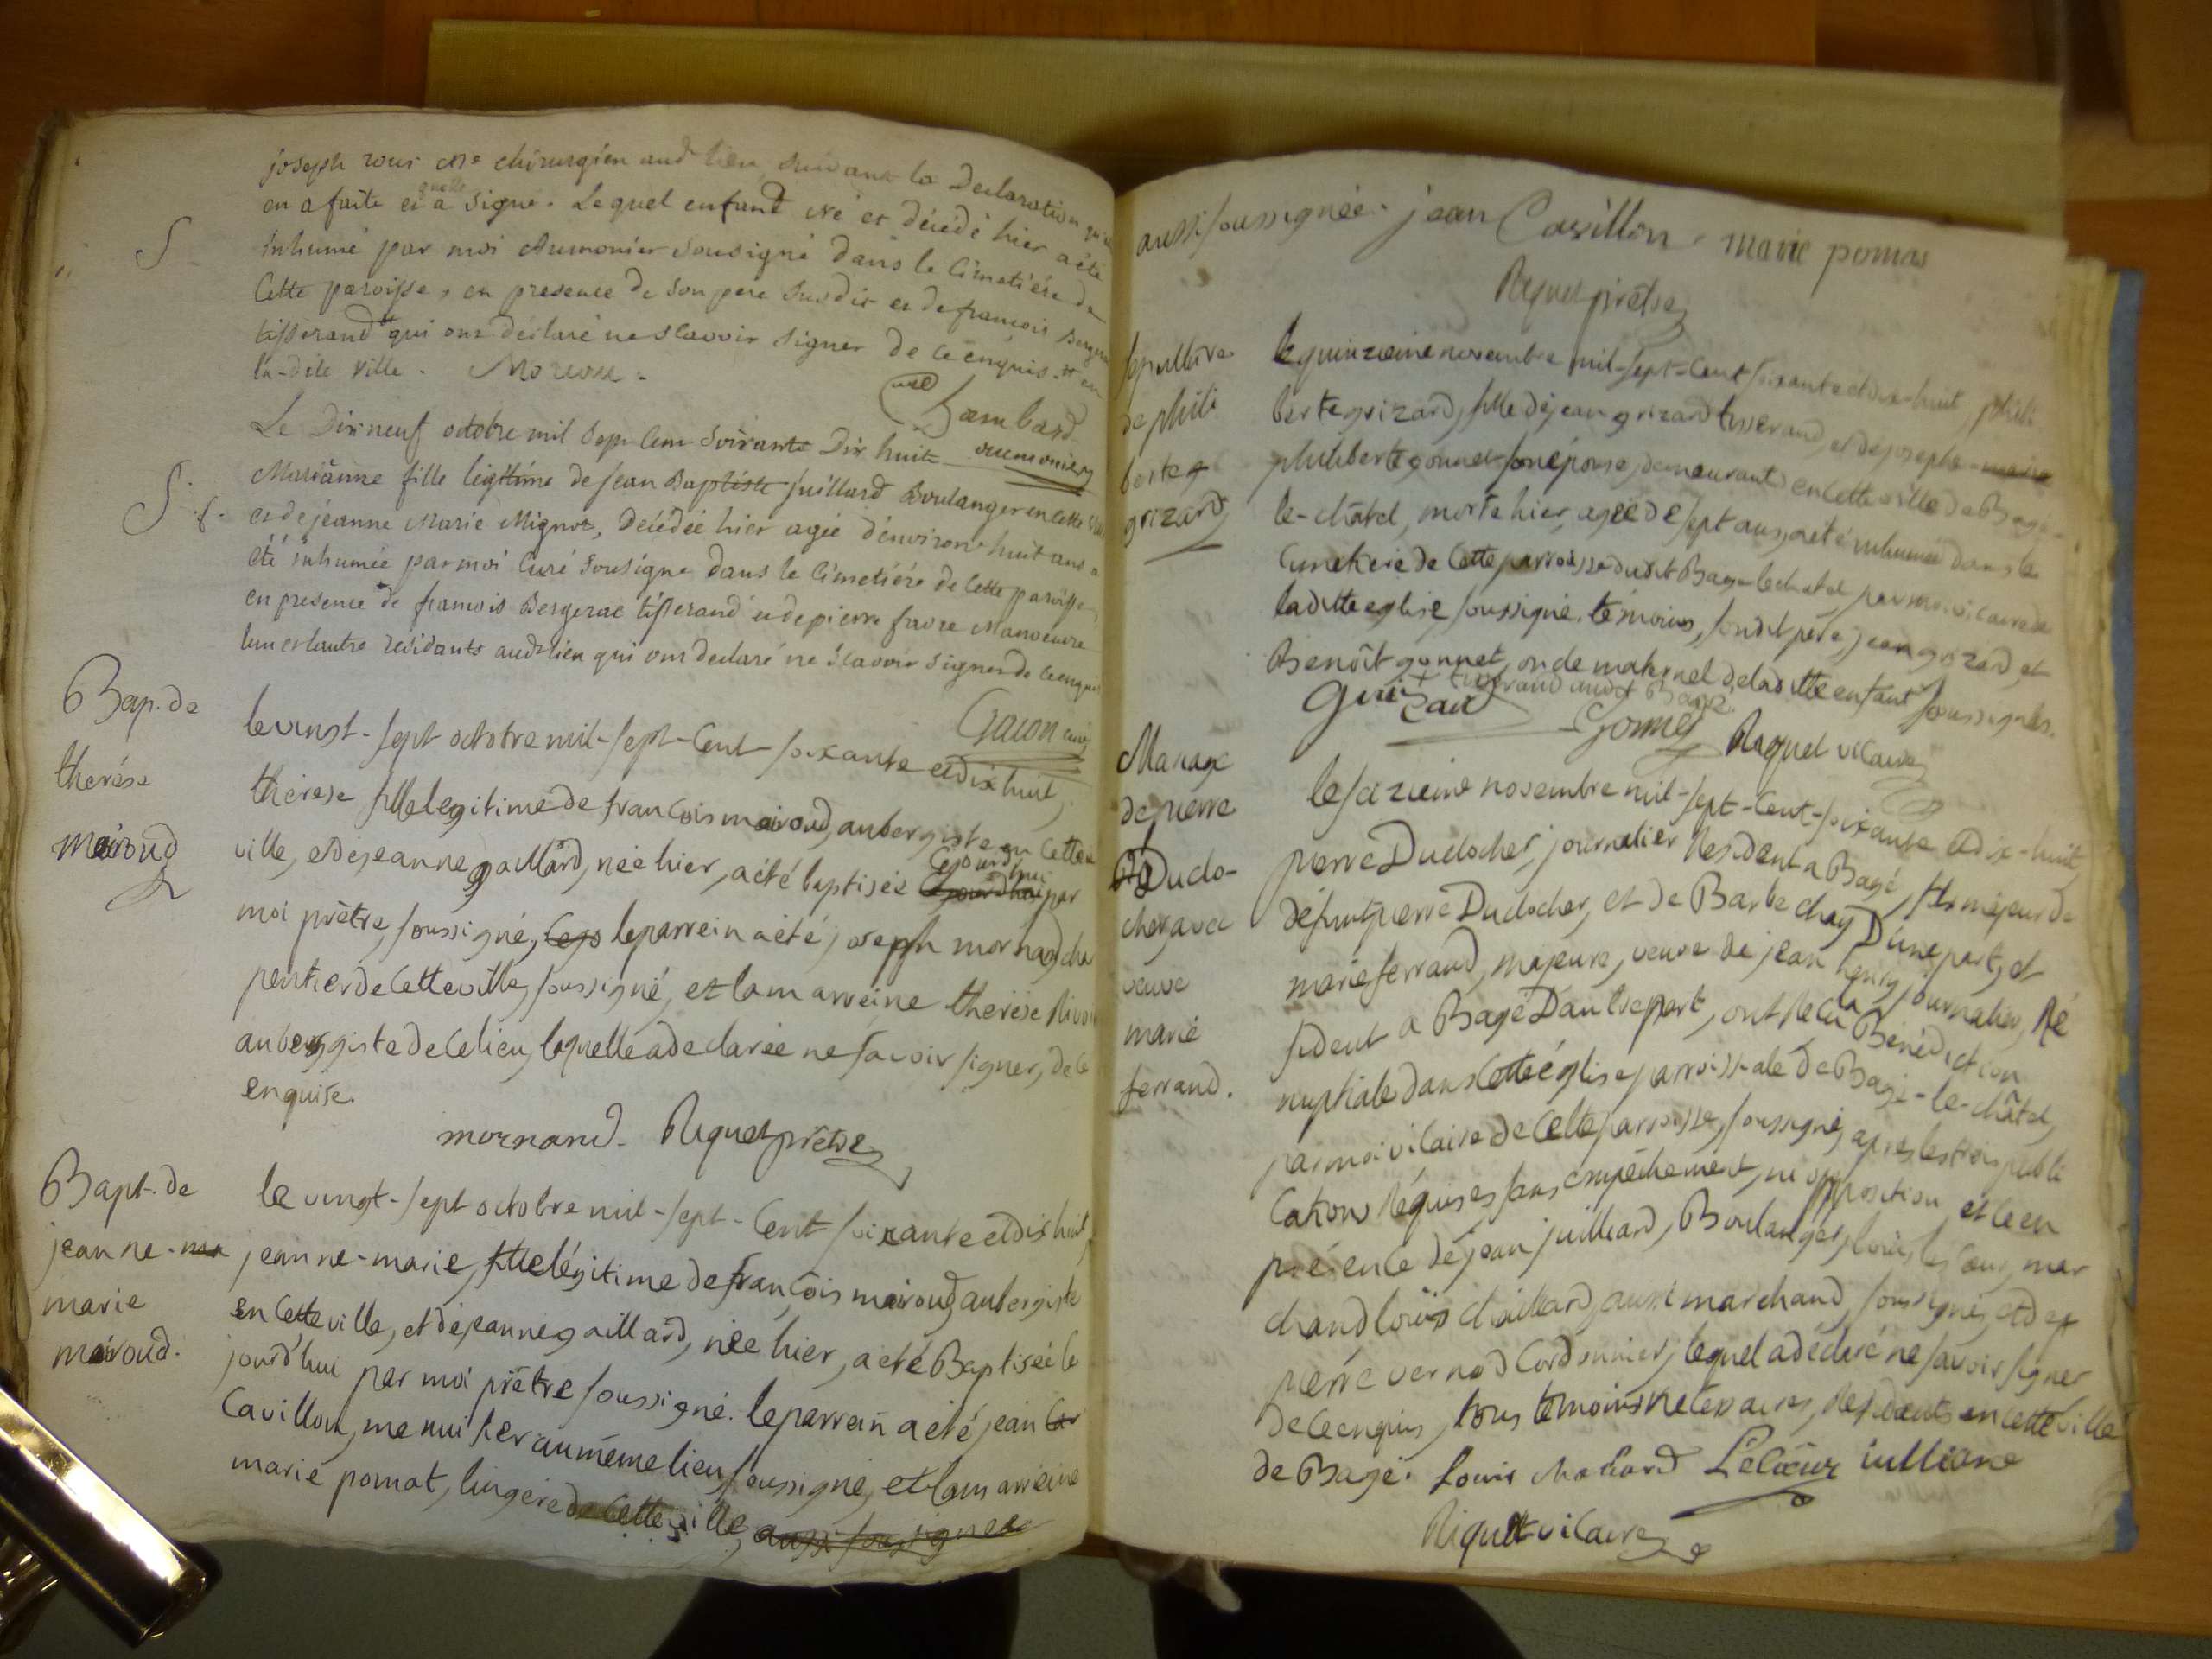 joseph roux Me chirurgien audt lieu, suivant la Declaration qu'il
en a faite et a signé. Lequel enfant né et décédé hier a été
inhumé par moi Aumonier Sousigné dans le Cimetiére de
Cette paroisse, en presence de Son pere Susdit et de francois Bergerac
tisserand qui ont déclaré ne Scavoir Signer de ce enquis. en
la-dite ville.
Gambard
aumonier
S
Le Dix neuf octobre mil Sept Cent Soixante Dix huit
Marianne fille legitime de Jean Baptiste Juillard Boulanger en Cette ville
et de jeanne Marie Mignot, Décédée hier agée d'environ huit ans a
été inhumée par moi Curé Sousigné dans le Cimetiére de Cette paroisse
en presence de francois Bergerac tisserand et de pierre favre Manoeuvre
l'un et l'autre residants audt lieu qui ont declaré ne Scavoir Signer de ce enquis
Gacon curé
S. f.
Bap. de
therése
mairoud
le vingt-sept octobre mil-sept-Cent-soixante et dix huit,
thérese fille legitime de francois mairoud, aubergiste en Cette
ville, et de jeanne gaillard, née hier, a été baptisée Cejourd'hui par
moi prêtre, soussigné, le parrein a été joseph mornand char
pentier de Cette ville, soussigné, et la marreine therése
aubergiste de Ce lieu, laquelle a declarée ne savoir signer, de Ce
enquise.
mornand. Riquet prêtre
Bapt. de
jeanne-ma
marie
mairoud.
le vingt-sept octobre mil-sept-Cent soixante et dix huit,
jeanne-marie, fille légitime de francois mairoud aubergiste
en Cette ville, et de jeanne gaillard, née hier, a été Baptisée Ce
jourd'hui par moi prêtre soussigné. le parrein a été jean Ca
Cavillon, menuisier au même lieu, soussigné, et la marreine
marie pomat, lingere de Cette ville, aussi soussignée
aussi soussignée. jean Cavillon. marie pomat
Riquet prêtre
sepulture
de phili
berte g
grizard
le quinzieme novembre mil-sept-Cent soixante et dix-huit, phili
berte grizard, fille de jean grizard tisserand, et de josephe-marie
philiberte gonnet son épouse, demeurant en Cette ville de Bagé-
le-châtel, morte hier, agée de sept ans, a été inhumée dans le
Cimetiere de Cette parroisse dudit Bagé-le-chatel par moi vicaire de
ladite eglise soussigné. témoins, son dit pere, jean grizard et
Benoît gonnet, oncle maternel de ladite enfant soussignés.
tisserand audt Bagé.
grizard Gonnet Riquet vicaire
Mariage
de pierre
Duclo-
cher avec
veuve
marie
ferrand.
le seizieme novembre mil-sept-Cent-soixante et dix-huit,
pierre Duclocher, journalier Resident a Bagé, fils majeur de
défunt pierre Duclocher, et de Barbe chay D'une part, et
marie ferrand, majeure, veuve de jean henry journalier, Ré
sident a Bagé D'autre part, ont reçu la Bénédiction
nuptiale dans Cette église parroissiale de Bagé-le-châtel,
par moi vicaire de Cette parroisse, soussigné, apres les trois publi
Cations Réquises sans empêchement, ni opposition, et Ce en
présence de jean juilliard, Boulanger, louis le Cœur, mar
chand louis chaillard, aussi marchand, soussignés, et de p
pierre vernod Cordonnier, lequel a déclaré ne savoir signer
de Ce enquis, tous témoins Necessaires, Residents en Cette ville
de Bagé. Louis chaliard Lecœur iulliard
Riquet vicaire